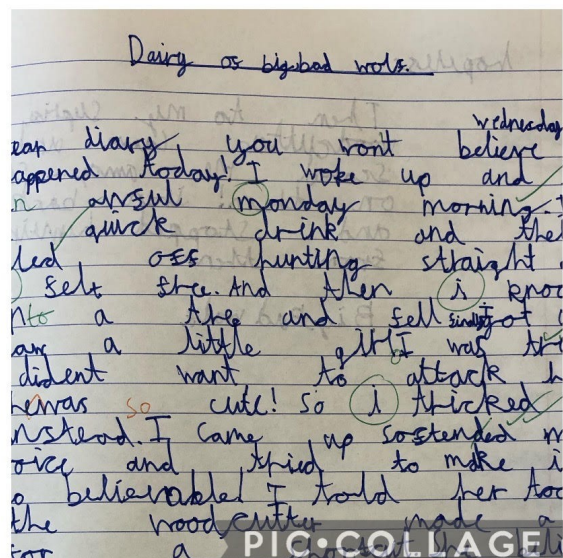 Dairy os bigbad wols.
wednesday
ear diary you wont believe
appened today! I woke up and
n awsul monday morning.
quick drink and the
led oss hunting straight
selt sree. And then i knoc
nto a tree and sell got
aw a little girl I was
dident want to attack h
ewas so cute! So i tricked
nstead. I came up sostended m
oice and tried to make i
o believable! I told her
the woodcutter made a
for a shortcut the beli
PIC•COLLAGE